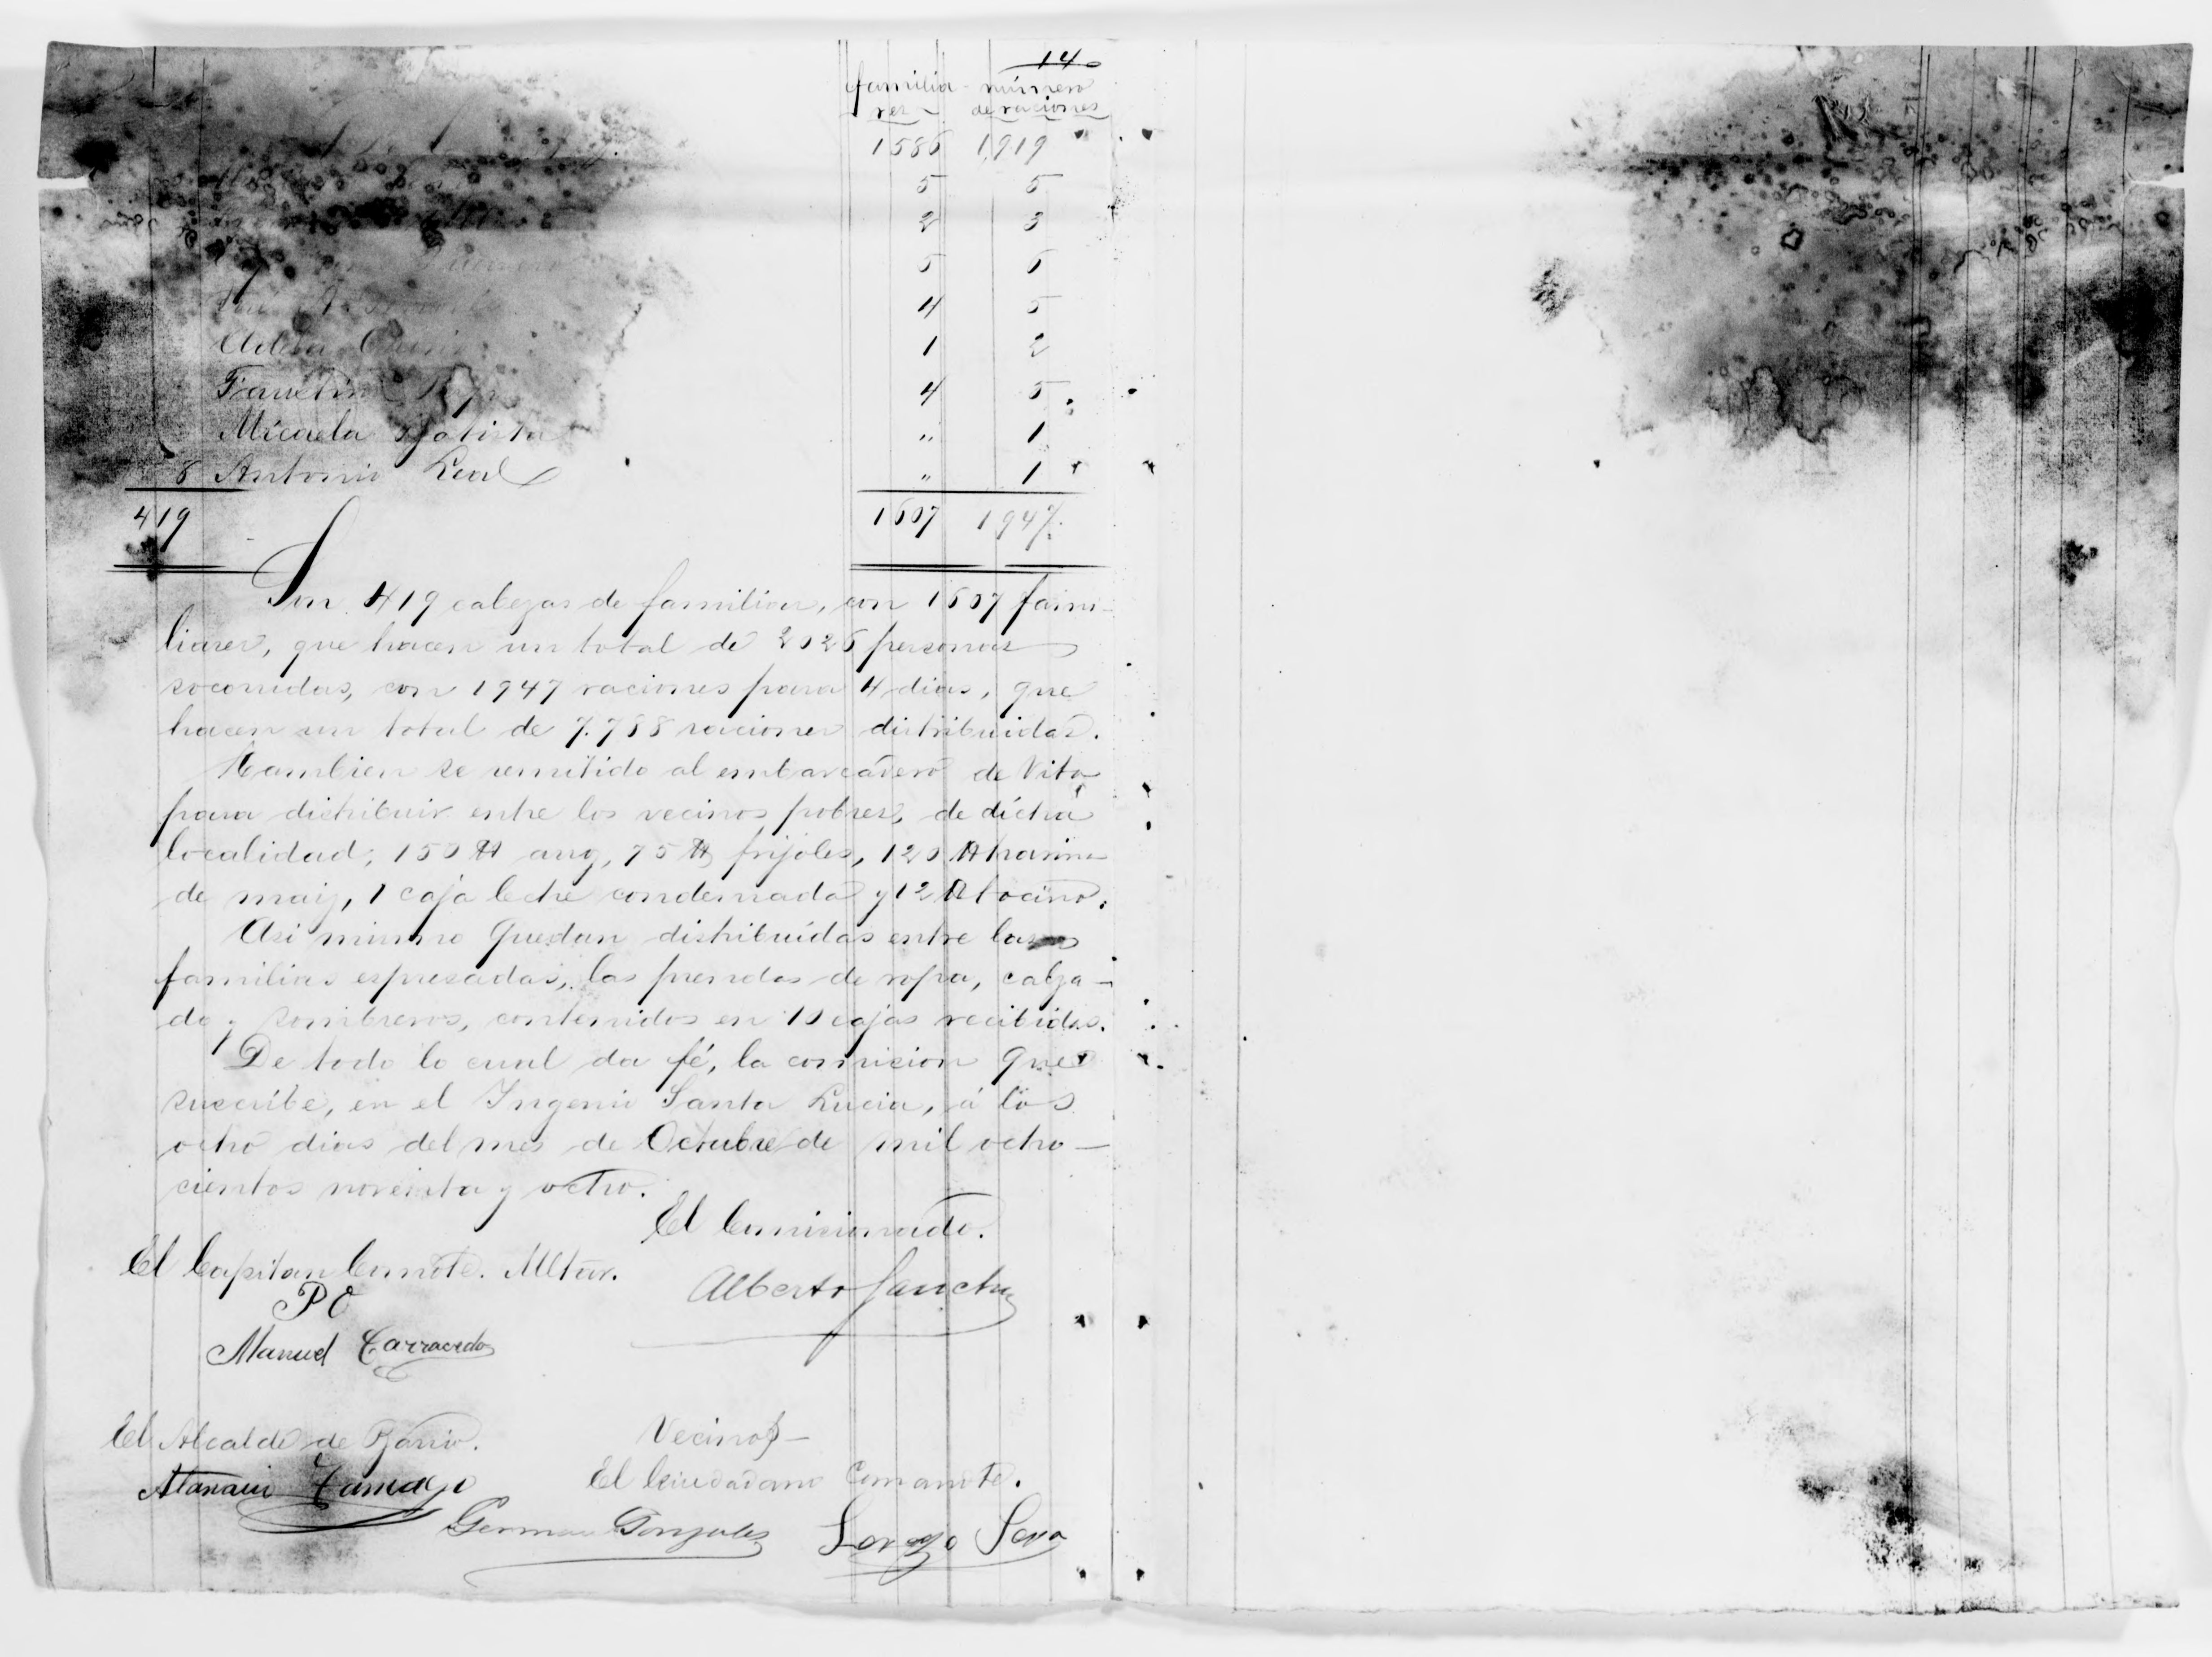 14
familia- número
res de raciones
1586 1,919
5 5
2 3
5 6
4 5
1 2
Faustino 4 5
Micaela Batista " 1
8 Antonio Leal " 1
419 1607 1947.
Son 419 cabezas de familia, con 1607 fami-
liares, que hacen un total de 2026 personas
socorridas, con 1947 raciones para 4 dias, que
hacen un total de 7.788 raciones distribuidas.
Tambien se remitido al embarcadero de Vita
para distribuir entre los vecinos pobres, de dicha
localidad; 150 ℔ arroz, 75 ℔ frijoles, 120 ℔ harina
de maiz, 1 caja leche condensada y 12 ℔ tocino.
Asi mismo quedan distribuidas entre las
familias espresadas, las prendas de ropa, calza-
do y sombreros, contenidos en 10 cajas recibidas.
De todo lo cual da fé, la comision que
suscribe, en el Ingenio Santa Lucia, á los
ocho dias del mes de Octubre de mil ocho-
cientos noventa y ocho.
El Comisionado.
El Capitan Comdte. Mltar.
Alberto Sanchz
P O
Manuel Carracedo
El Alcalde de Barrio. Vecinos-
Atanacio Tamayo El Ciudadano Comandte.
German Gonzales Lorenzo